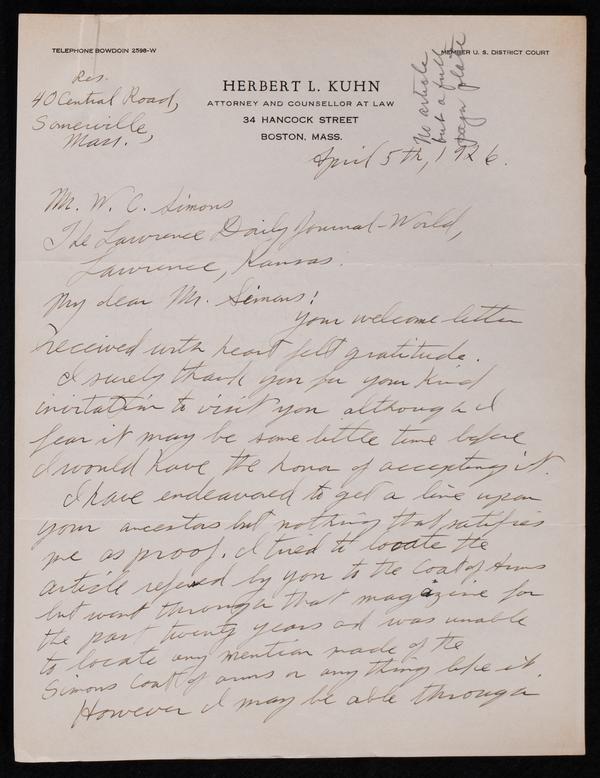 TELEPHONE BOWDOIN 2598-W
MEMBER U. S. DISTRICT COURT
HERBERT L. KUHN
ATTORNEY AND COUNSELLOR AT LAW
34 HANCOCK STREET
BOSTON, MASS.
Res.
40 Central Road,
Somerville,
Mass.
No article
but a full
page plate
April 5th, 1926.
Mr. W. C. Simons
The Lawrence Daily Journal-World,
Lawrence, Kansas.
My dear Mr. Simons!
Your welcome letter
received with heart felt gratitude.
I surely thank you for your kind
invitation to visit you although I
fear it may be some little time before
I would have the honor of accepting it.
I have endeavored to get a line upon
your ancestors but nothing that satisfies
me as proof. I tried to locate the
article refered by you to the Coat of Arms
but went through that magazine for
the past twenty years and was unable
to locate any mention made of the
Simons Coat of arms or anything like it.
However I may be able through